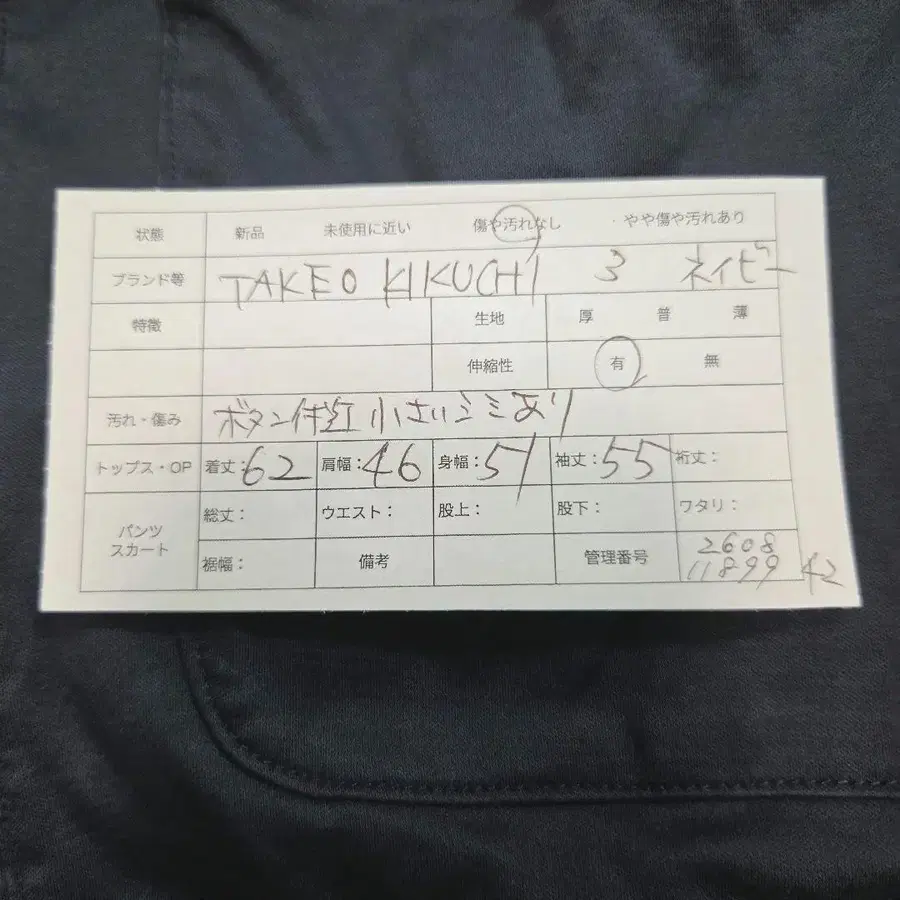 状態 新品 未使用に近い 傷や汚れなし やや傷や汚れあり
ブランド等 TAKEO KIKUCHI 3 ネイビー
特徴 生地 厚 普 薄
伸縮性 有 無
汚れ・傷み ボタン付近小さいシミあり
トップス・OP 着丈:62 肩幅:46 身幅:51 袖丈:55 裄丈:
パンツ 総丈: ウエスト: 股上: 股下: ワタリ:
スカート 裾幅: 備考 管理番号 2608
11899 42